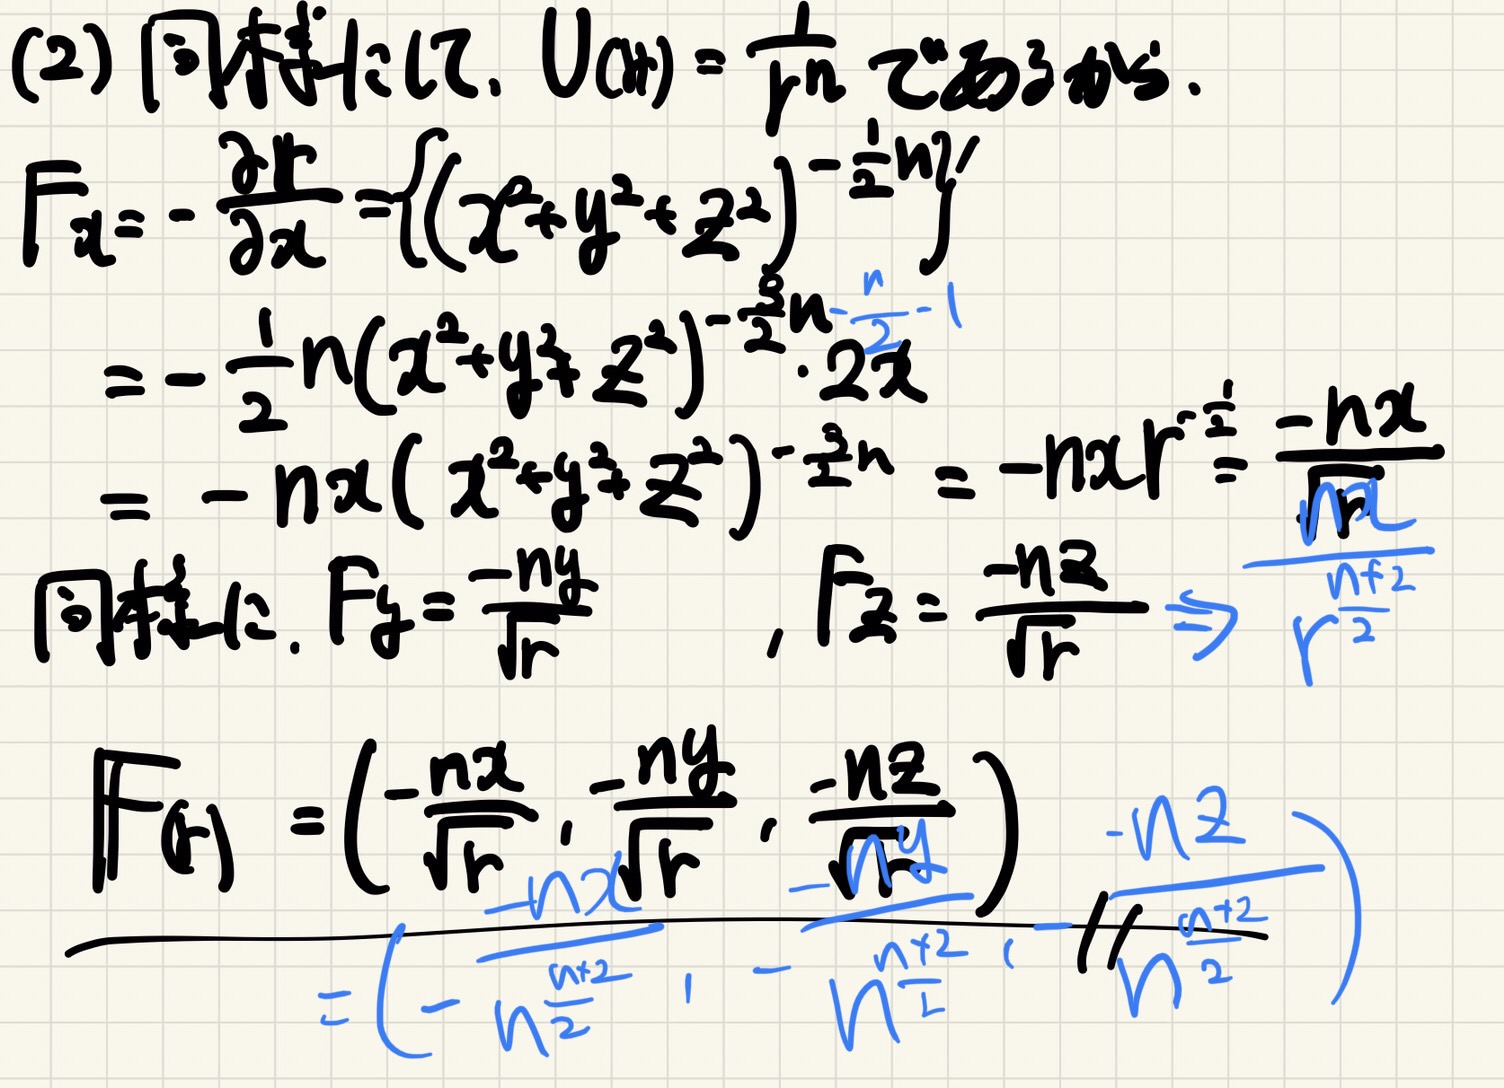 (2) 同様にして、U(r) = 1/r^n であるから、
F_x = - ∂r/∂x = {(x²+y²+z²)^(-1/2 n)}'
= - 1/2 n(x²+y²+z²)^(-3/2 n) · 2x -n/2 - 1
= - nx(x²+y²+z²)^(-3/2 n) = -nxr^(-1/2) = -nx/√r
同様に、F_y = -ny/√r , F_z = -nz/√r ⇒ nx/r^((n+2)/2)
F(r) = (-nx/√r , -ny/√r , -nz/√r) //
= (- -nx/n^((n+2)/2) , - -ny/n^((n+2)/2) , - -nz/n^((n+2)/2))